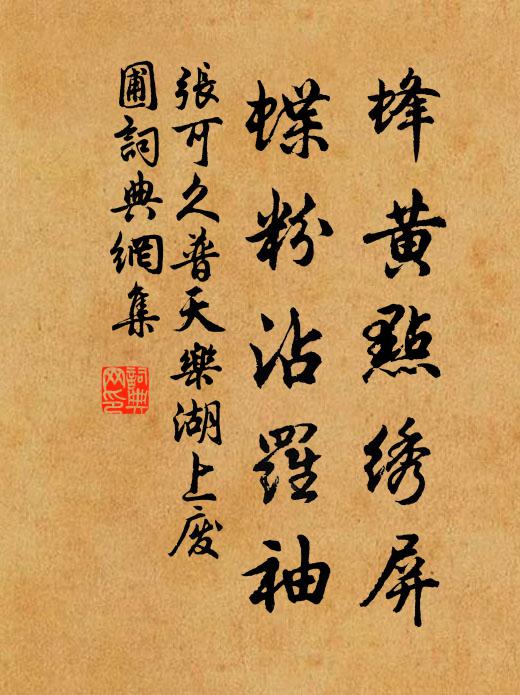 蜂黄點绣屏
蝶粉沾羅袖
張可久普天樂湖上廢
圃詞典網集
詞典
网印